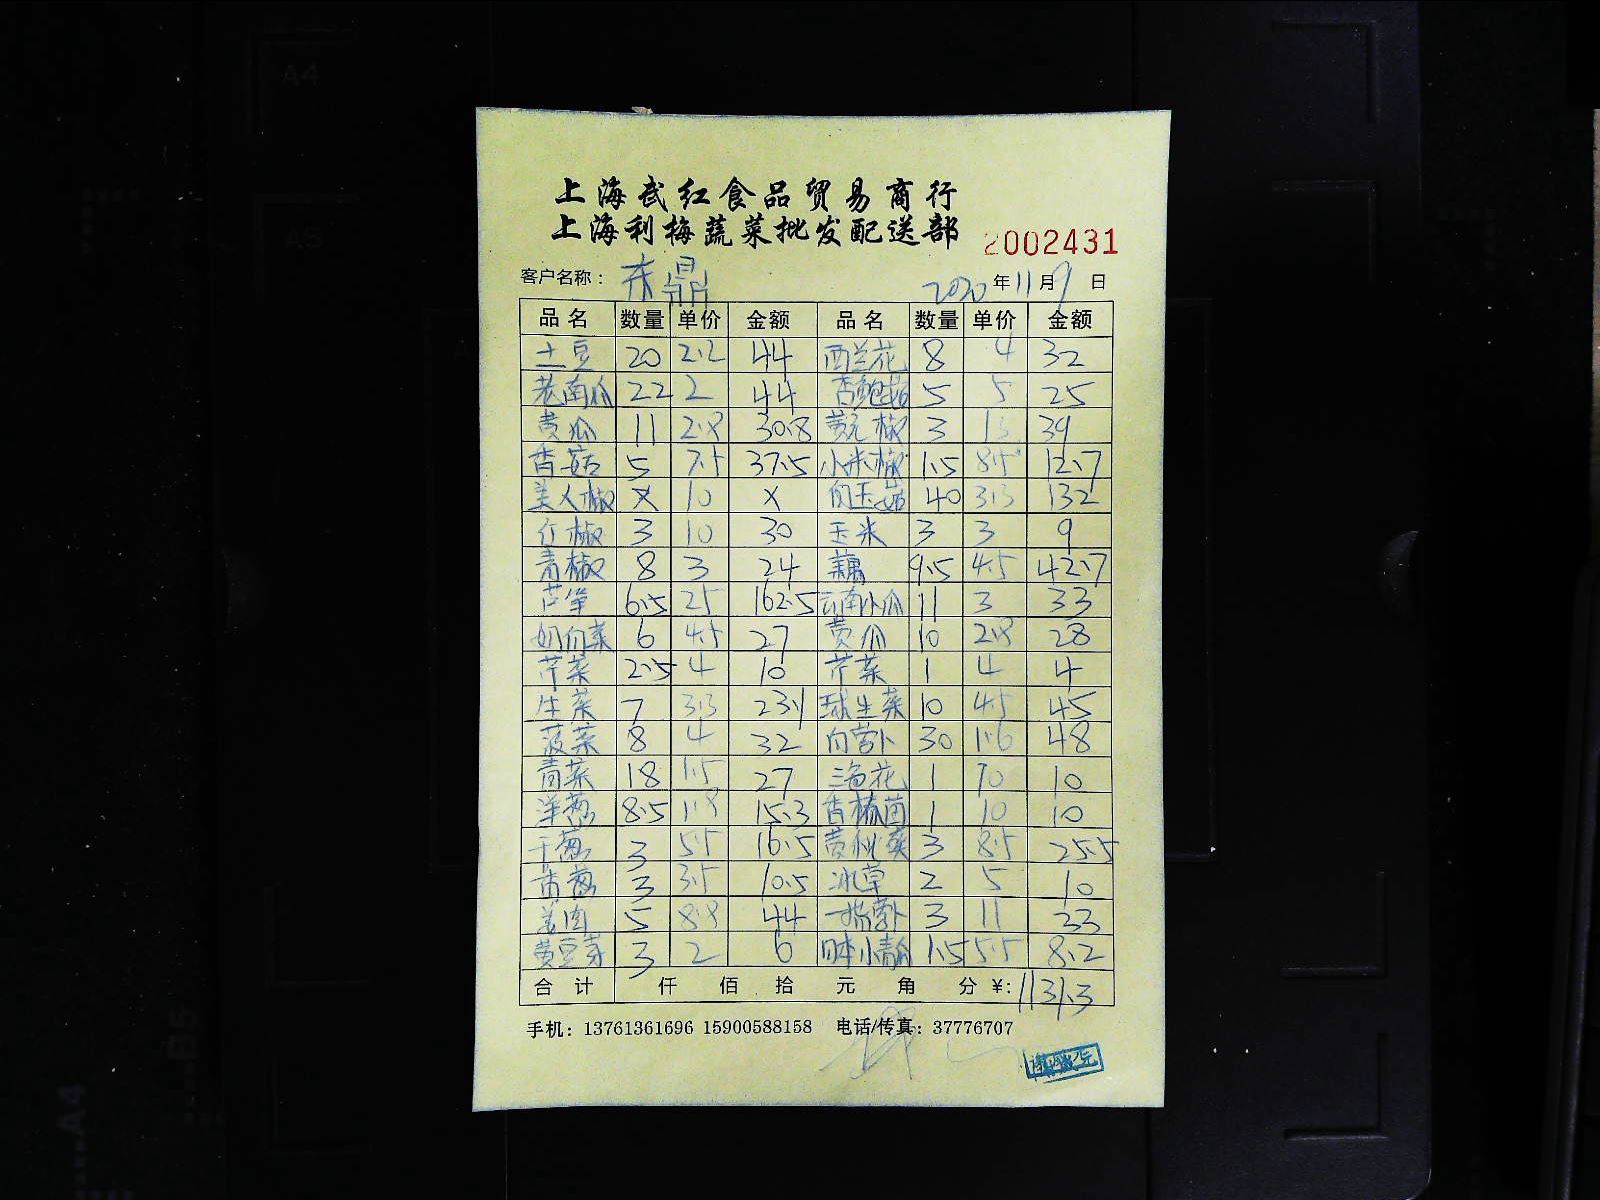 上海武红食品贸易商行
上海利梅蔬菜批发配送部
2002431
客户名称： 鼎 2020年11月9日
品名 数量 单价 金额 品名 数量 单价 金额
土豆 20 2.2 44 西兰花 8 4 32
老南瓜 22 2 44 杏鲍菇 5 5 25
黄瓜 11 2.8 30.8 黄元椒 3 13 39
香菇 5 7.5 37.5 小米椒 1.5 8.5 12.7
美人椒 x 10 x 白玉菇 40 3.3 132
红椒 3 10 30 玉米 3 3 9
青椒 8 3 24 藕 9.5 4.5 42.7
芦笋 6.5 25 162.5 云南小瓜 11 3 33
奶白菜 6 4.5 27 黄瓜 10 2.8 28
芹菜 2.5 4 10 芹菜 1 4 4
生菜 7 3.3 23.1 球生菜 10 4.5 45
菠菜 8 4 32 白萝卜 30 1.6 48
青菜 18 1.5 27 三色花 1 10 10
洋葱 8.5 1.8 15.3 香椿苗 1 10 10
干葱 3 5.5 16.5 黄秋葵 3 8.5 25.5
香葱 3 3.5 10.5 冰草 2 5 10
姜肉 5 8.8 44 一指萝卜 3 11 33
黄豆芽 3 2 6 日本小青瓜 1.5 5.5 8.2
合计 仟 佰 拾 元 角 分 ¥: 1131.3
手机：13761361696 15900588158 电话/传真：37776707